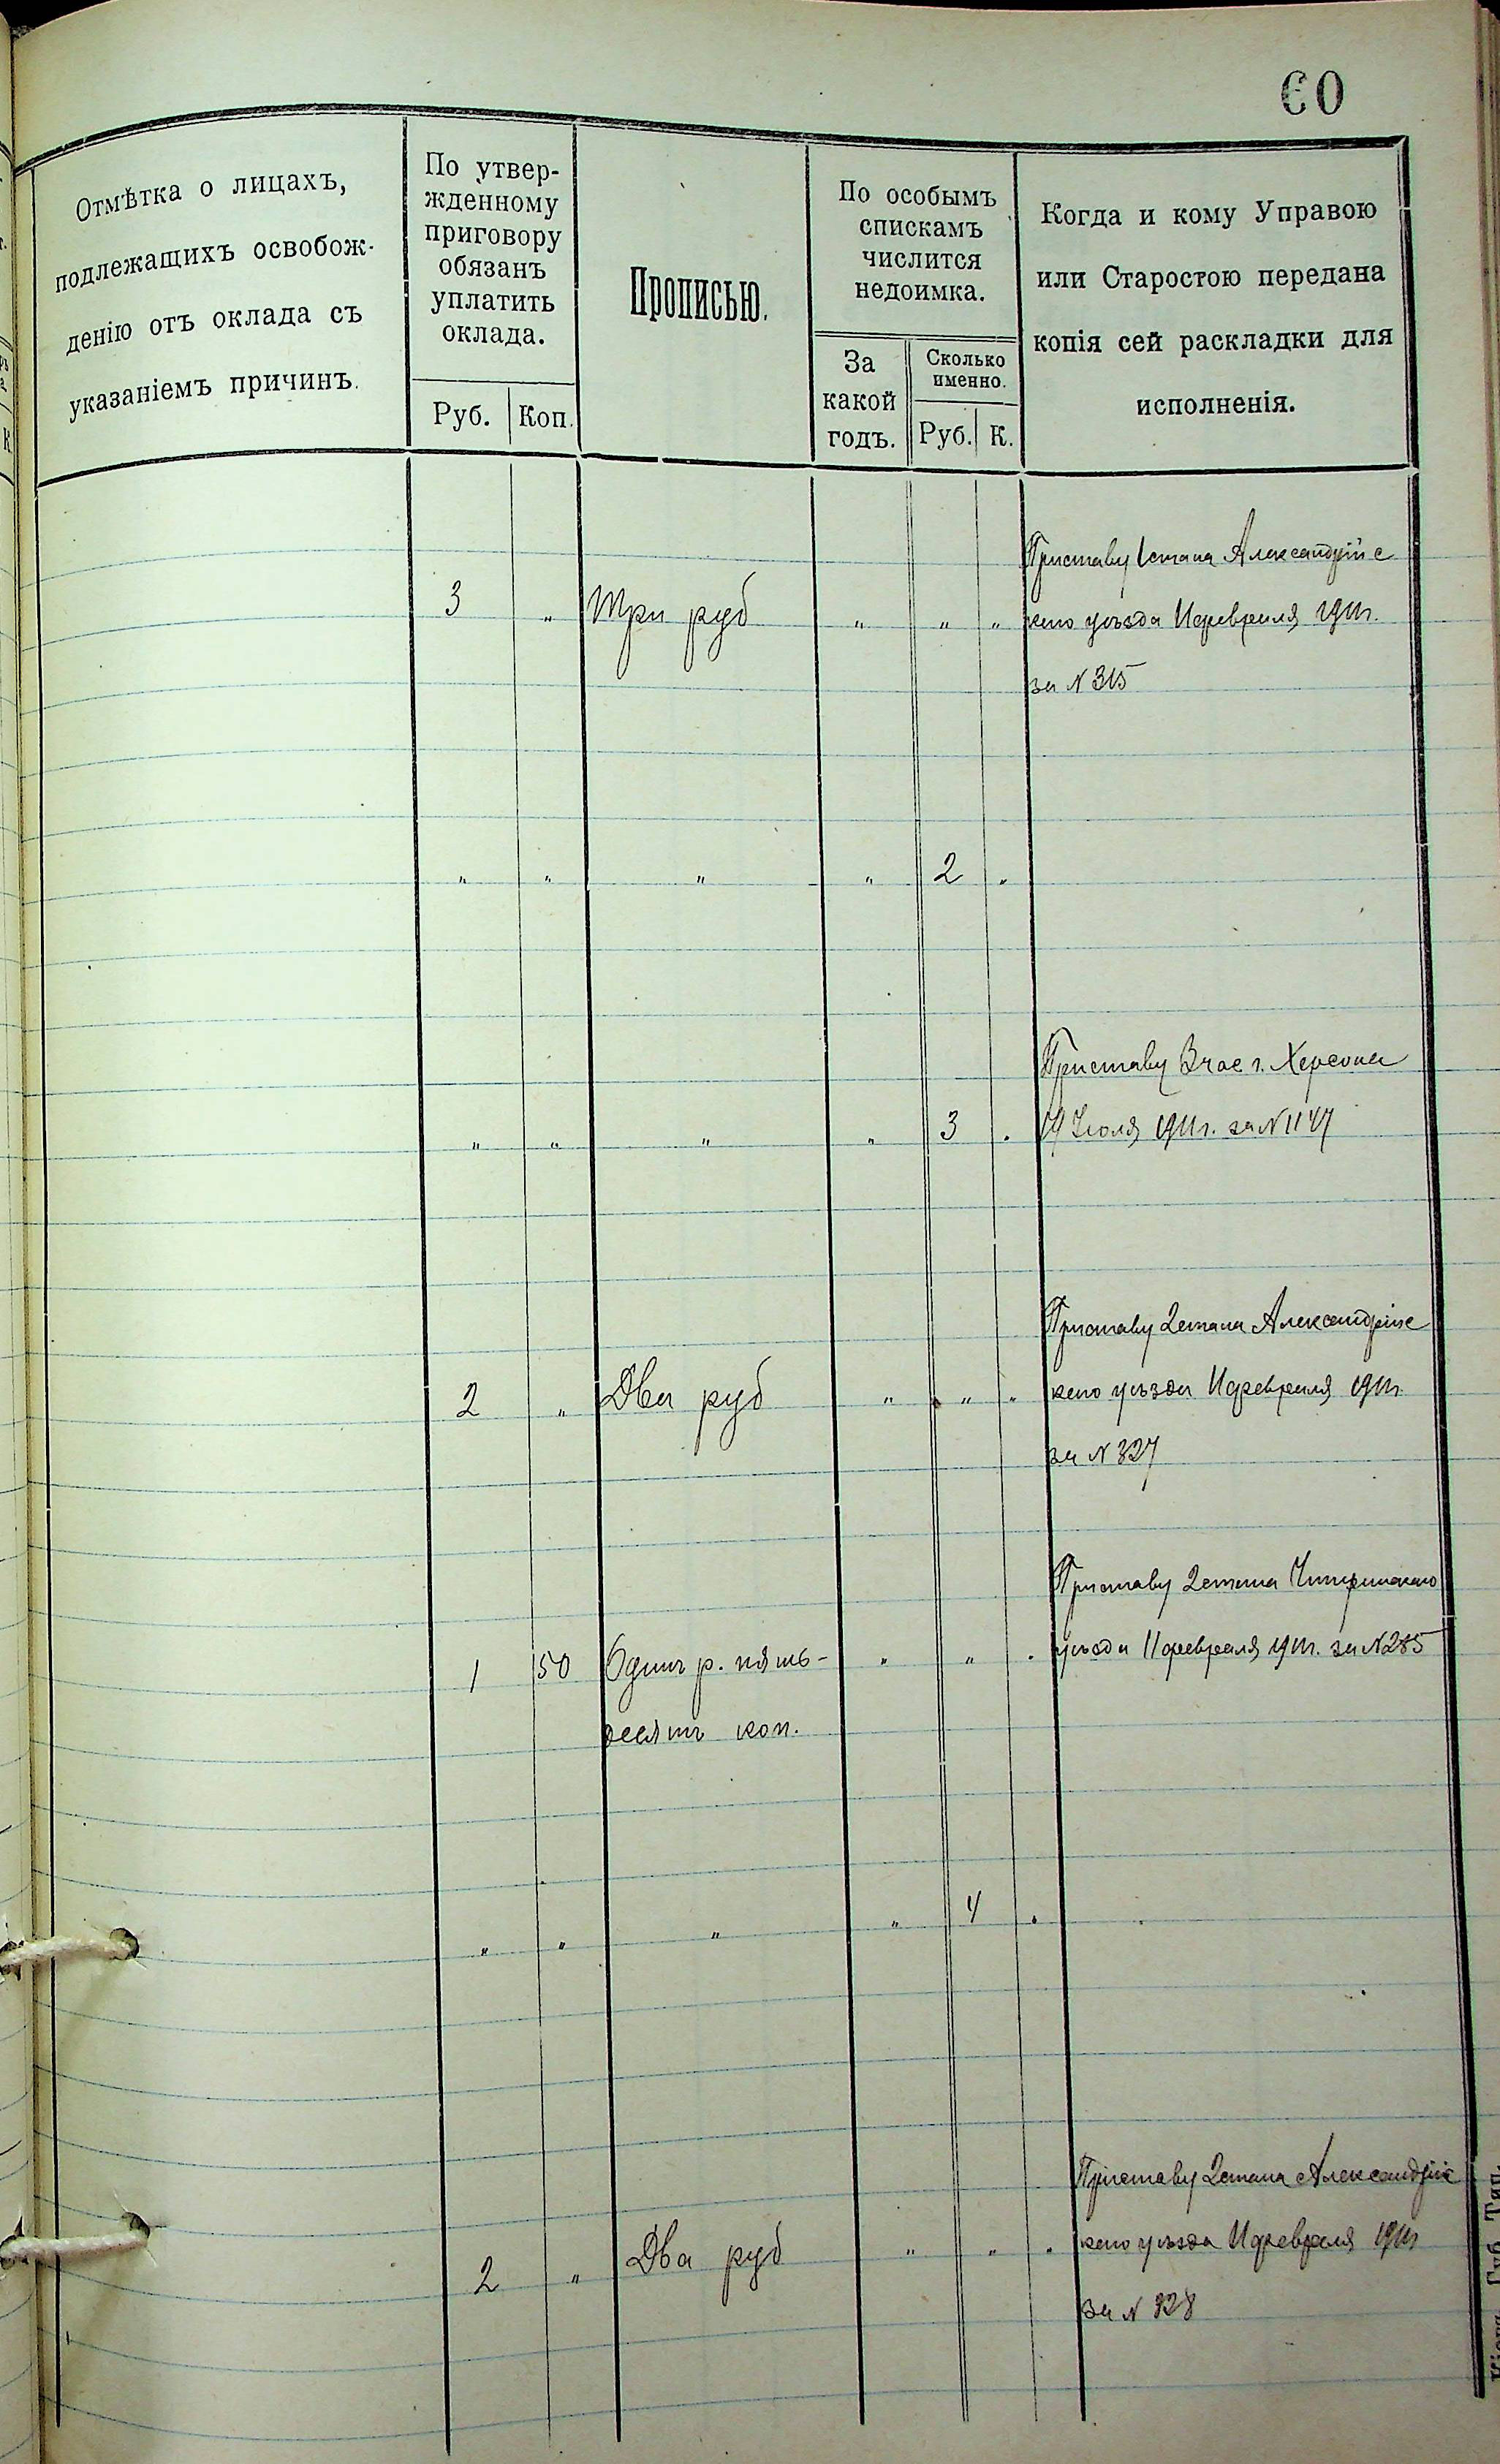 60
Отмѣтка о лицахъ,
подлежащихъ освобож-
денію отъ оклада съ
указаніемъ причинъ.
По утвер-
жденному
приговору
обязанъ
уплатить
оклада.
Руб. Коп.
Прописью.
По особымъ
спискамъ
числится
недоимка.
За
какой
годъ.
Сколько
именно.
Руб. К.
Когда и кому Управою
или Старостою передана
копія сей раскладки для
исполненія.
Приставу 1 стана Александрійс
3 " Три руб " " " каго уѣзда 11 февраля 1911г.
за N 315
" " " " 2 "
Приставу 3 час г. Херсона
" " " " 3 " 19 Іюля 1911г. за N 1147
Приставу 2 стана Александрійс
2 " Два руб " " " каго уѣзда 11 февраля 1911г.
за N 327
Приставу 2 стана Чигиринскаго
1 50 Одинъ р. пять- " " " уѣзда 11 февраля 1911г. за N 285
десятъ коп.
" " " " 4 "
Приставу 2 стана Александрійс
2 " Два руб " " " каго уѣзда 11 февраля 1911г
за N 328